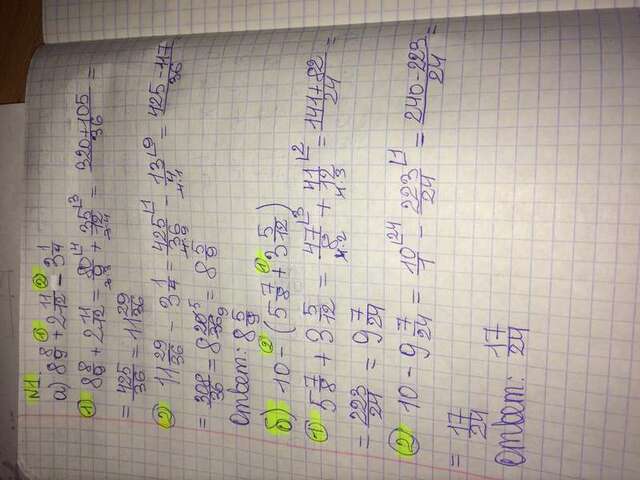 №1.
а) 8 8/9 + 2 11/12 - 3 1/4
1) 8 8/9 + 2 11/12 = 80/9 + 35/12 = 320+105/36 =
= 425/36 = 11 29/36
2) 11 29/36 - 3 1/4 = 425/36 - 13/4 = 425-117/36
= 308/36 = 8 20/36 = 8 5/9
Ответ: 8 5/9
б) 10 - (5 7/8 + 3 5/12)
1) 5 7/8 + 3 5/12 = 47/8 + 41/12 = 141+82/24 =
= 223/24 = 9 7/24
2) 10 - 9 7/24 = 10/1 - 223/24 = 240-223/24 =
= 17/24
Ответ: 17/24